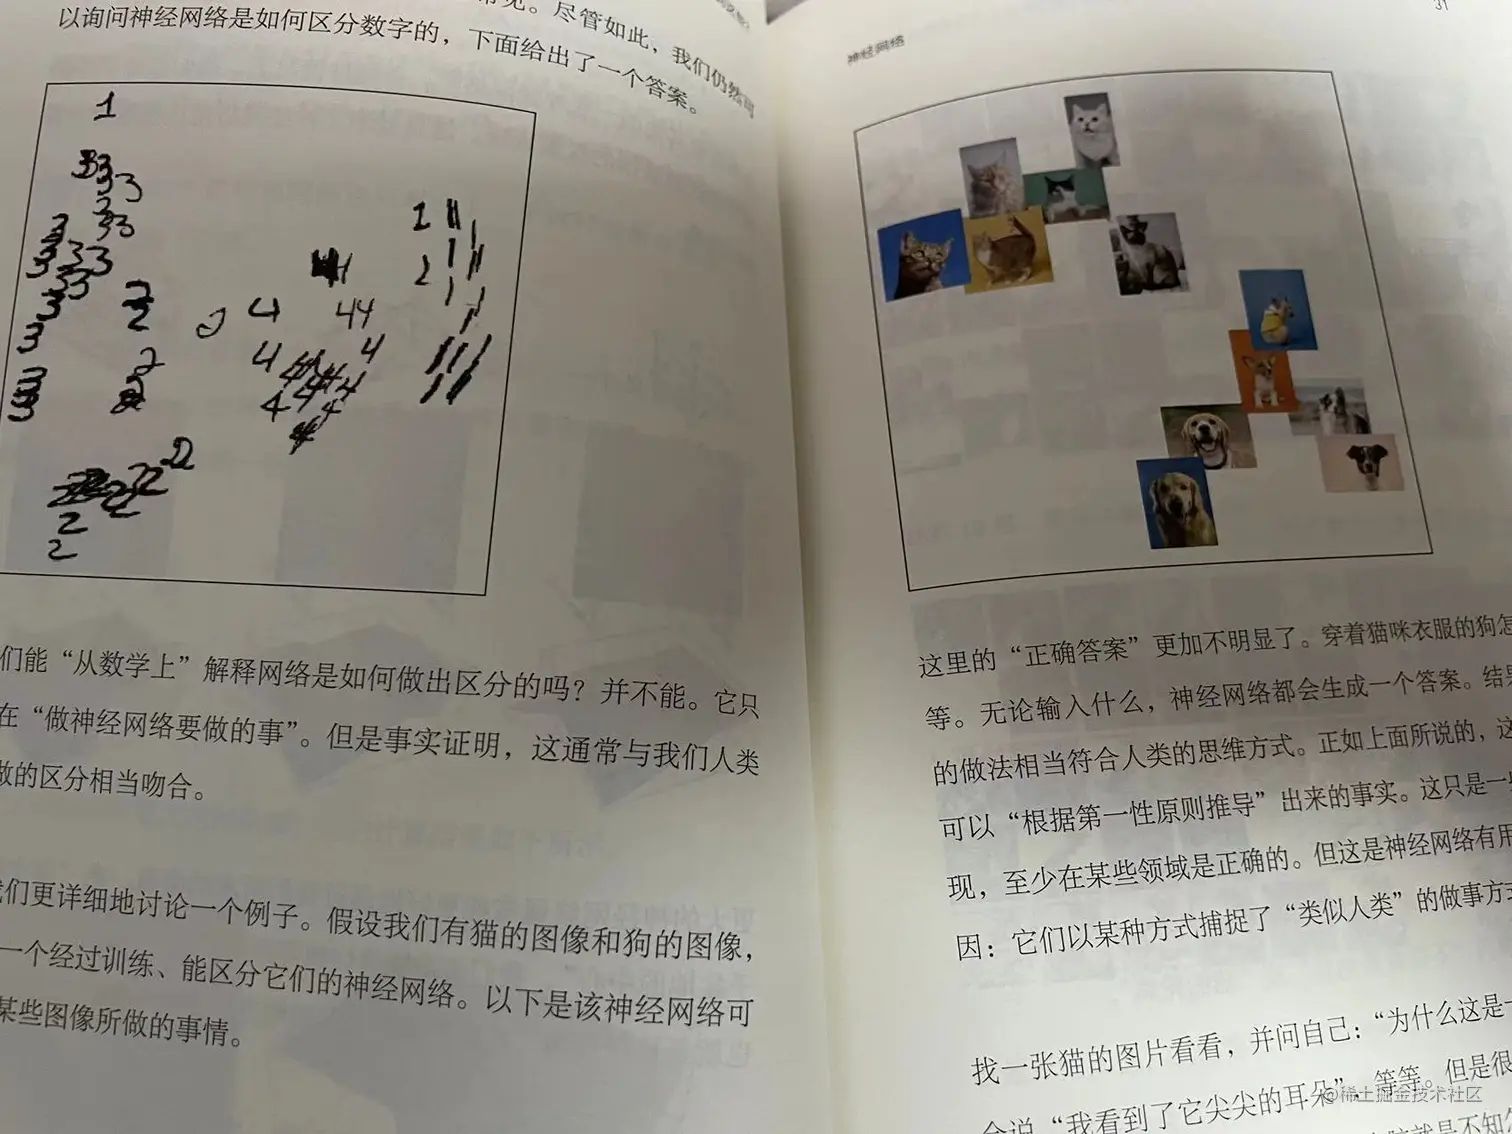 常见。尽管如此，我们仍然可
以询问神经网络是如何区分数字的，下面给出了一个答案。
1
们能“从数学上”解释网络是如何做出区分的吗？并不能。它只
在“做神经网络要做的事”。但是事实证明，这通常与我们人类
做的区分相当吻合。
我们更详细地讨论一个例子。假设我们有猫的图像和狗的图像，
一个经过训练、能区分它们的神经网络。以下是该神经网络可
某些图像所做的事情。
神经网络
31
这里的“正确答案”更加不明显了。穿着猫咪衣服的狗怎
等。无论输入什么，神经网络都会生成一个答案。结果
的做法相当符合人类的思维方式。正如上面所说的，这
可以“根据第一性原则推导”出来的事实。这只是一些
现，至少在某些领域是正确的。但这是神经网络有用
因：它们以某种方式捕捉了“类似人类”的做事方式
找一张猫的图片看看，并问自己：“为什么这是一
会说“我看到了它尖尖的耳朵”，等等。但是很
就是不知怎
@稀土掘金技术社区